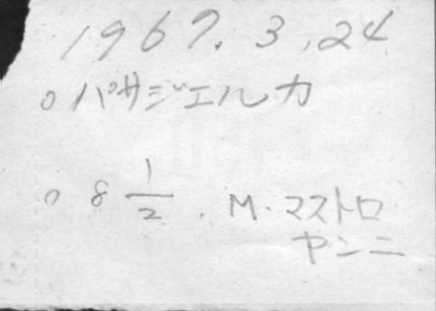 1967.3.24
○パサジェルカ
○8 1/2.M.マストロ
ヤンニ